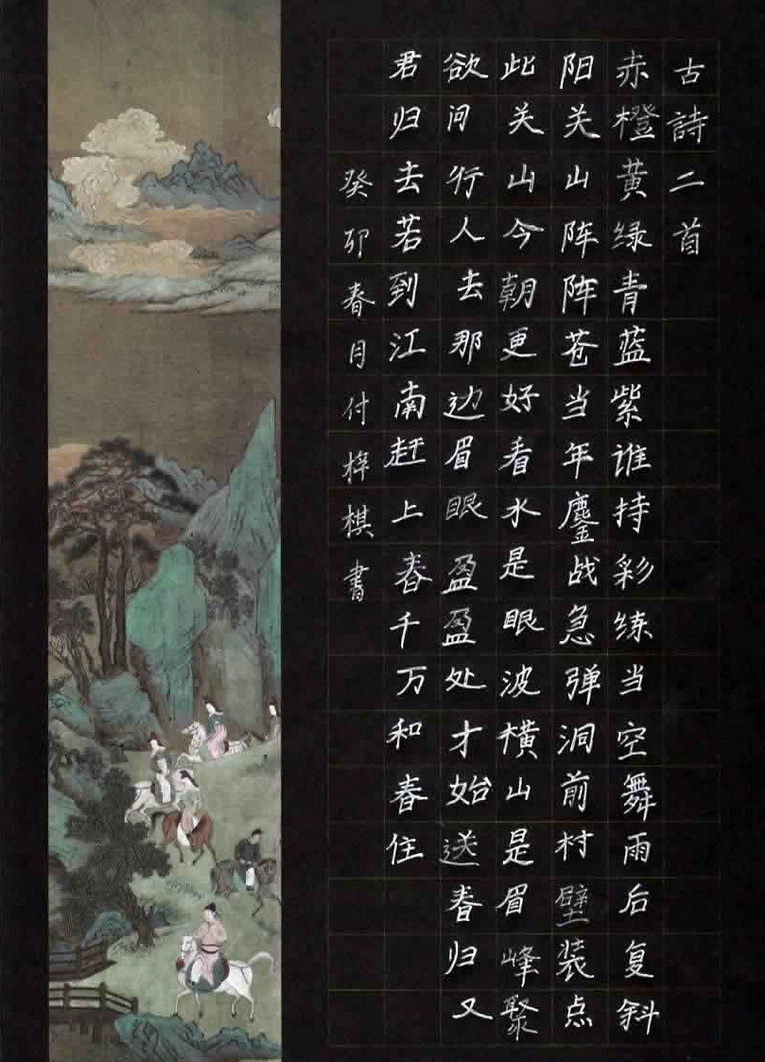 古詩二首
赤橙黄绿青蓝紫谁持彩练当空舞雨后复斜
阳关山阵阵苍当年鏖战急弹洞前村壁装点
此关山今朝更好看水是眼波横山是眉峰聚
欲问行人去那边眉眼盈盈处才始送春归又
君归去若到江南赶上春千万和春住
癸卯春月付梓棋書